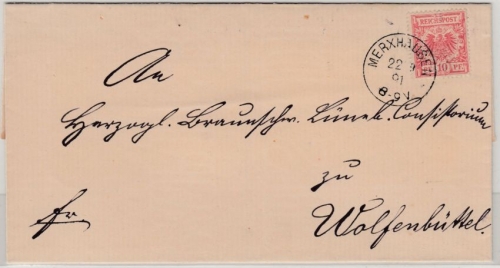 REICHSPOST
10 PF
MERXHAUSEN
22 9
91
8-9N.
An
Herzogl. Braunschw. Lüneb. Consistorium
zu
fr.
Wolfenbüttel.